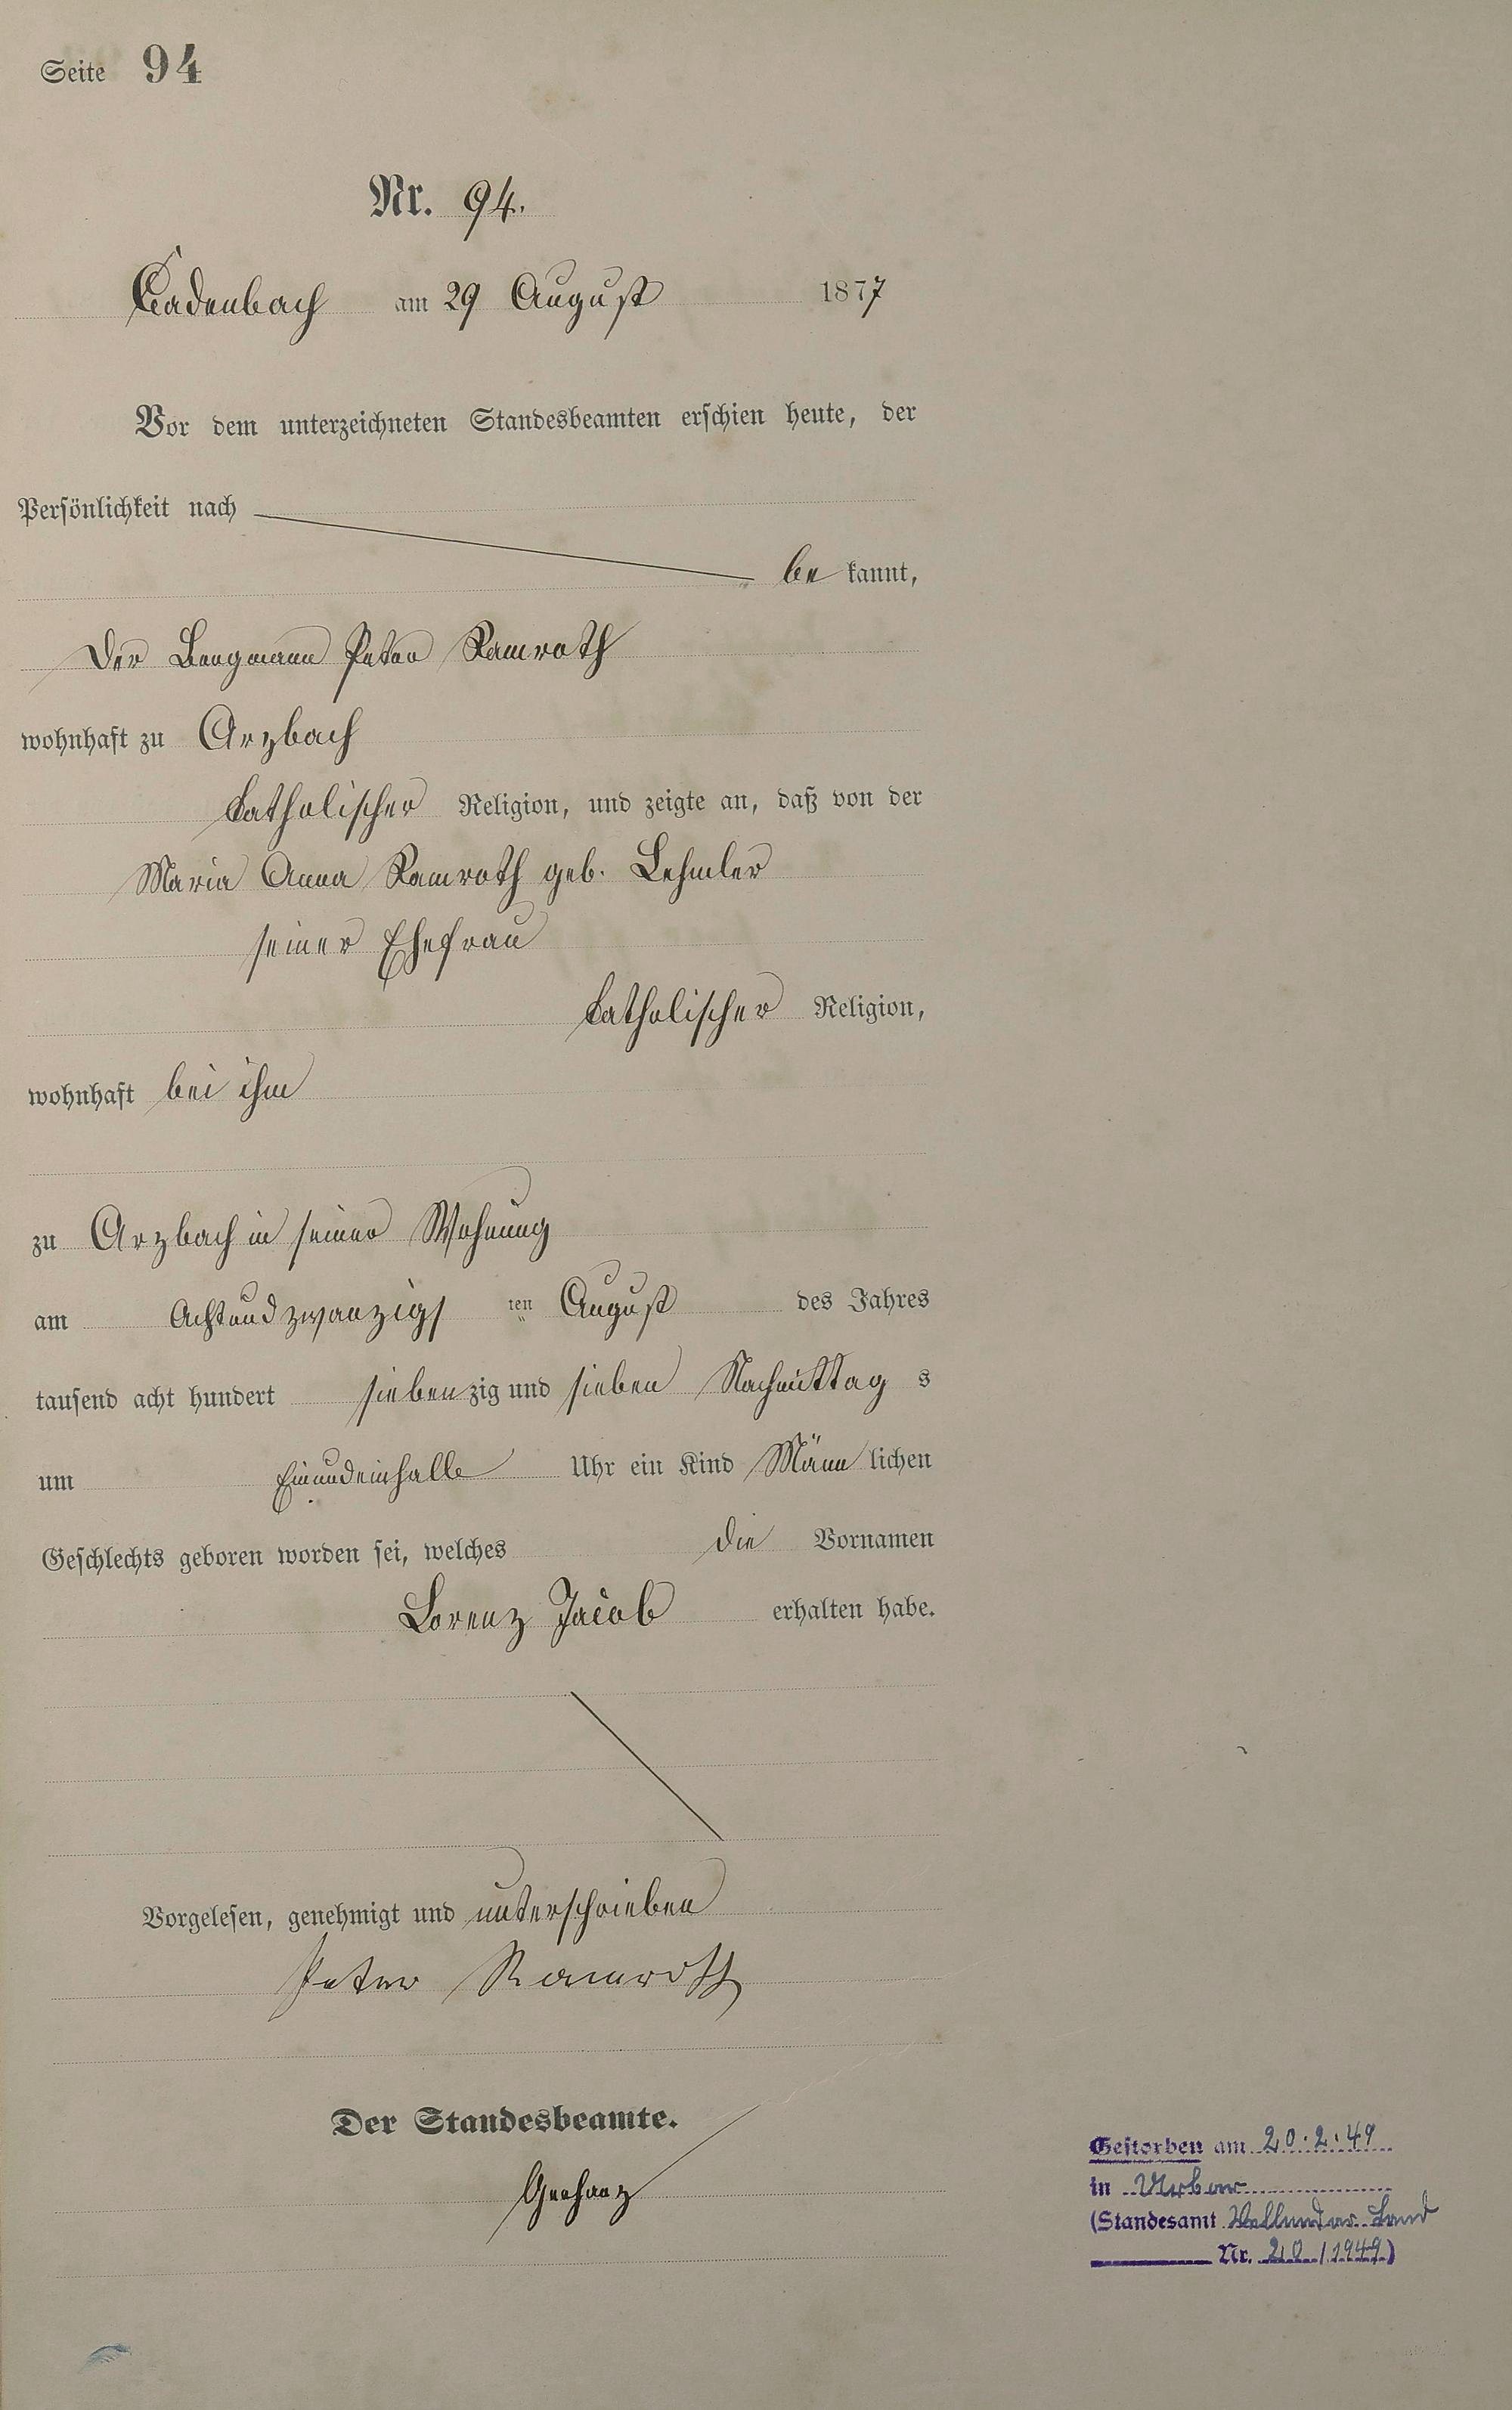 Seite 94
Nr. 94.
Cadenbach am 29 August 1877
Vor dem unterzeichneten Standesbeamten erschien heute, der
Persönlichkeit nach
be kannt,
Der Bergmann Peter Ramroth
wohnhaft zu Arzbach
katholischer Religion, und zeigte an, daß von der
Maria Anna Ramroth geb. Lehmler
seiner Ehefrau
katholischer Religion,
wohnhaft bei ihm
zu Arzbach in seiner Wohnung
am Achtundzwanzigs ten August des Jahres
tausend acht hundert siebenzig und sieben Nachmittag s
um Einundeinhalb Uhr ein Kind Männ lichen
Geschlechts geboren worden sei, welches die Vornamen
Lorenz Jacob erhalten habe.
Vorgelesen, genehmigt und unterschrieben
Peter Ramroth
Der Standesbeamte.
Gestorben am 20.2.49
in Urbar
(Standesamt Vallendar-Land
Nr. 20/1949)